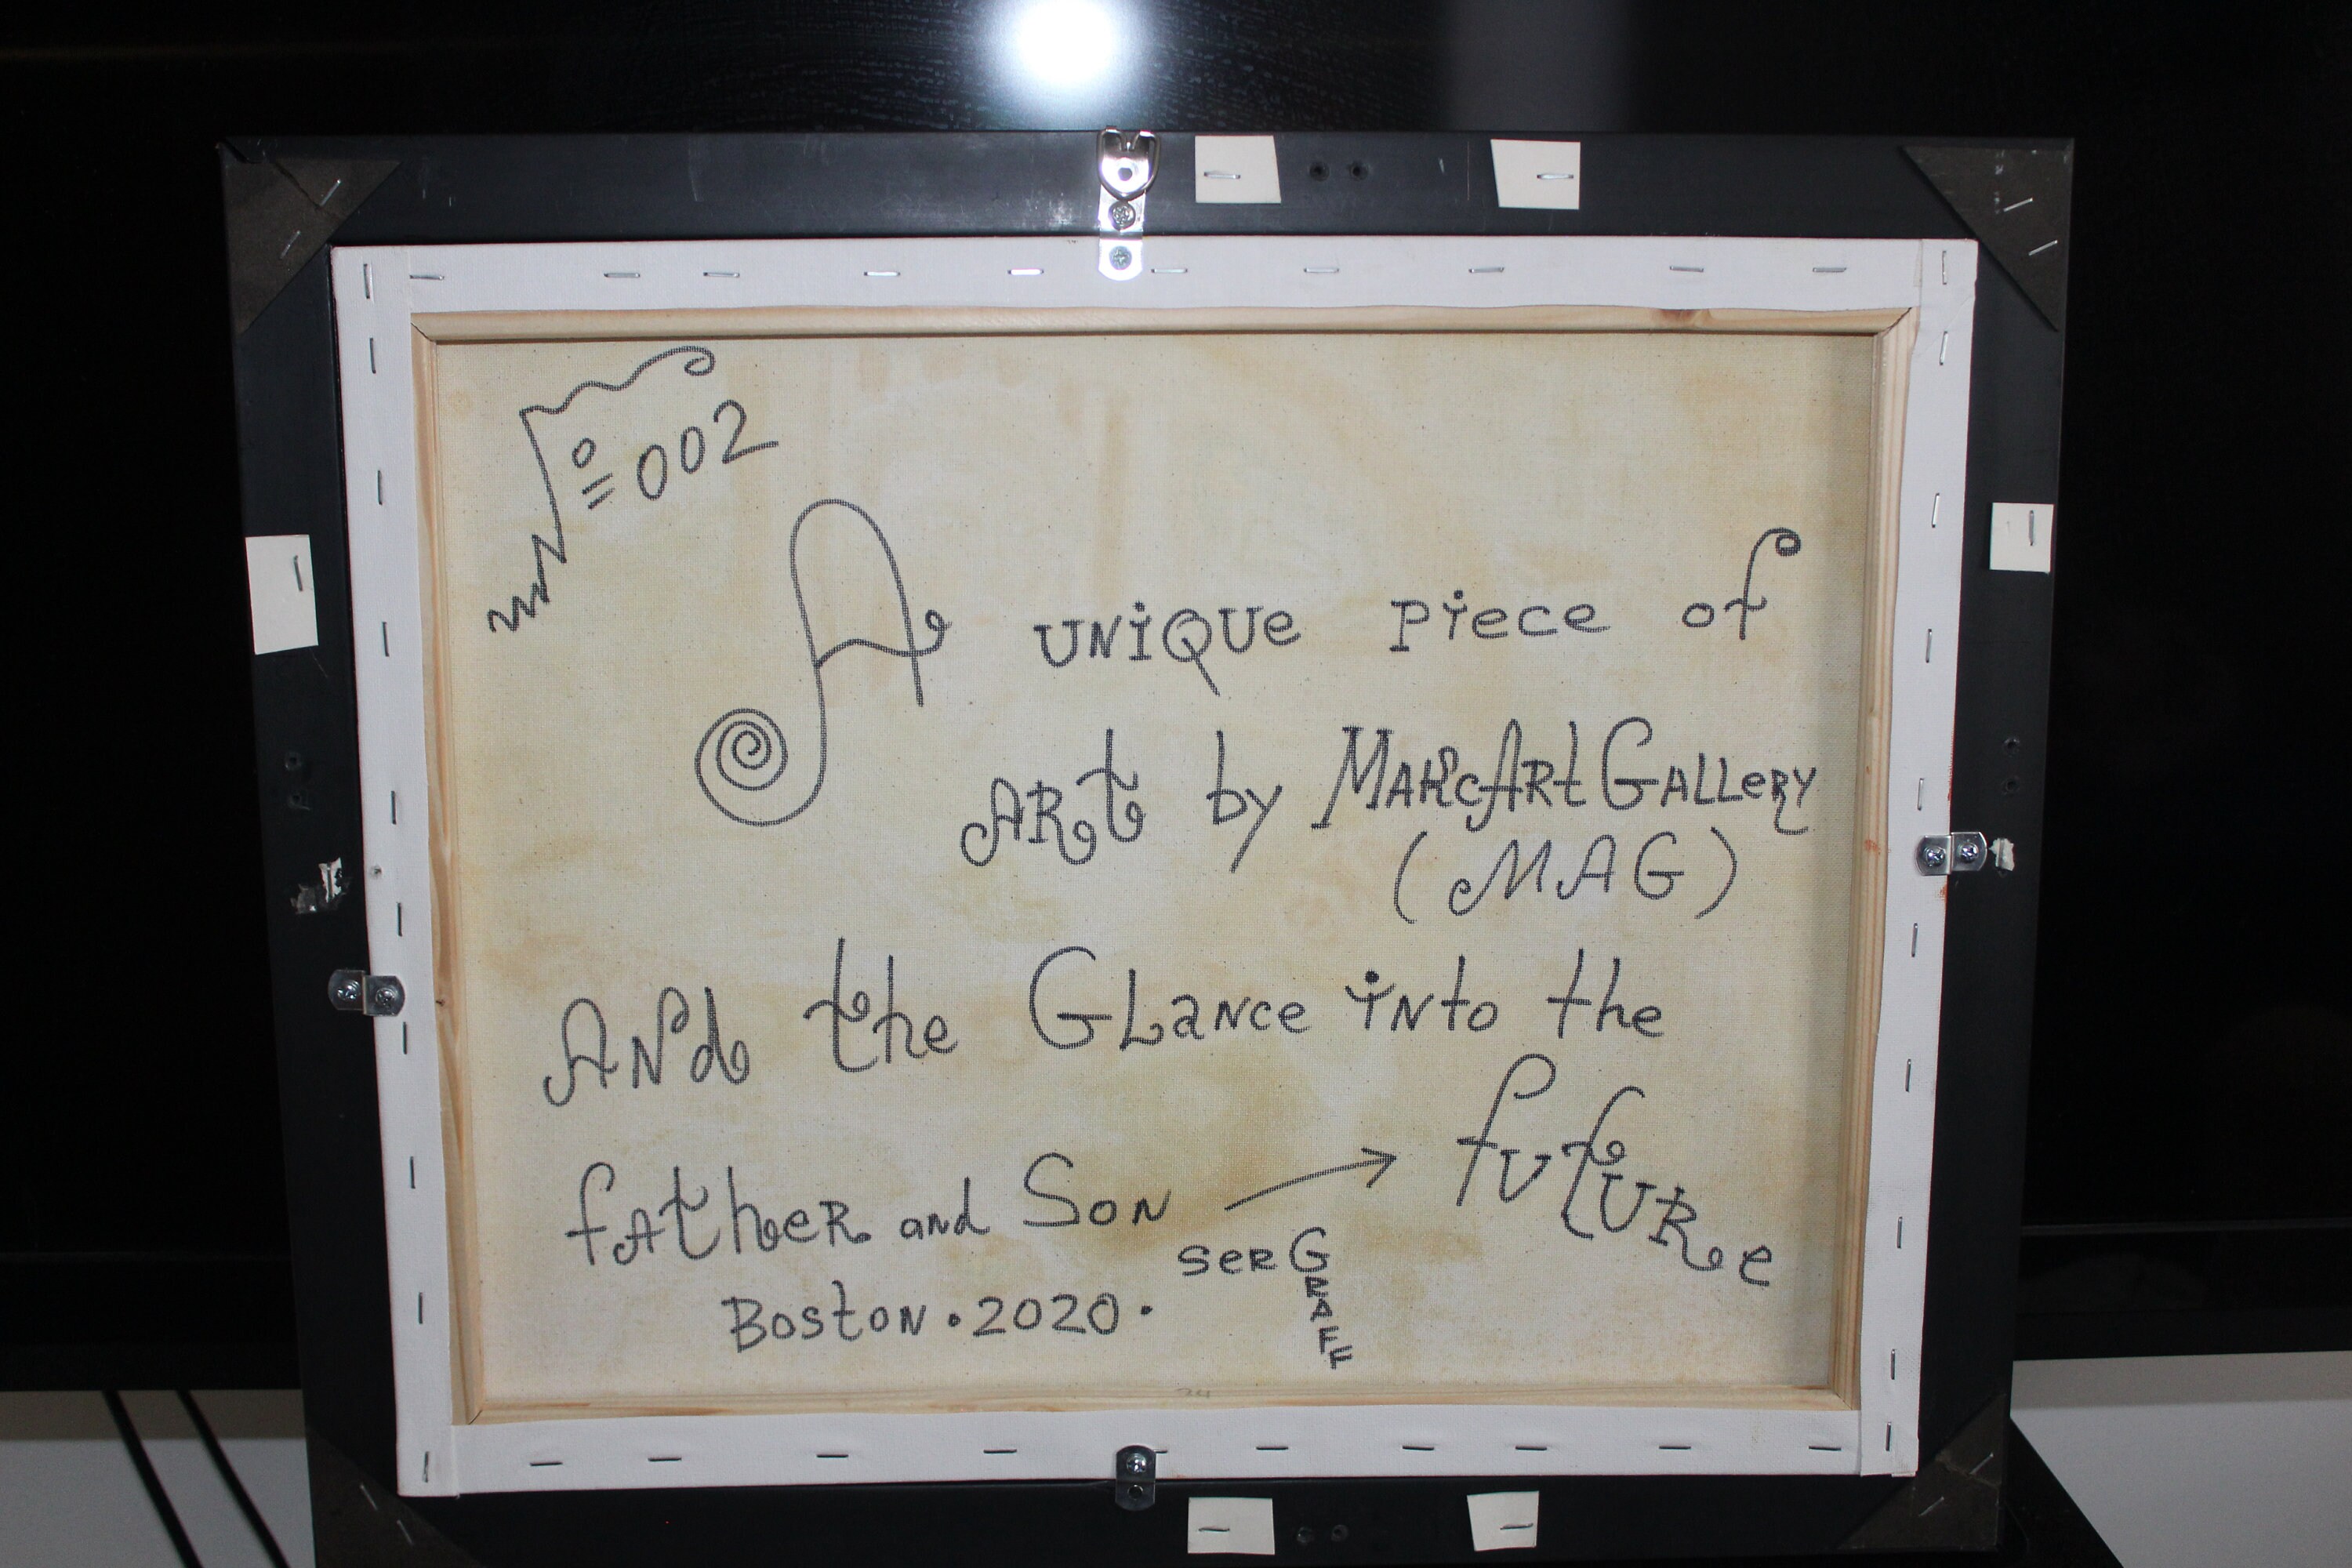 № 002
A UNiQUe Piece of
ARt by MARcARt GALLeRy
(MAG)
ANd the GLaNce iNto the
fUtURe
fAtheR and SoN →
SeRGRAFF
BostoN • 2020 •